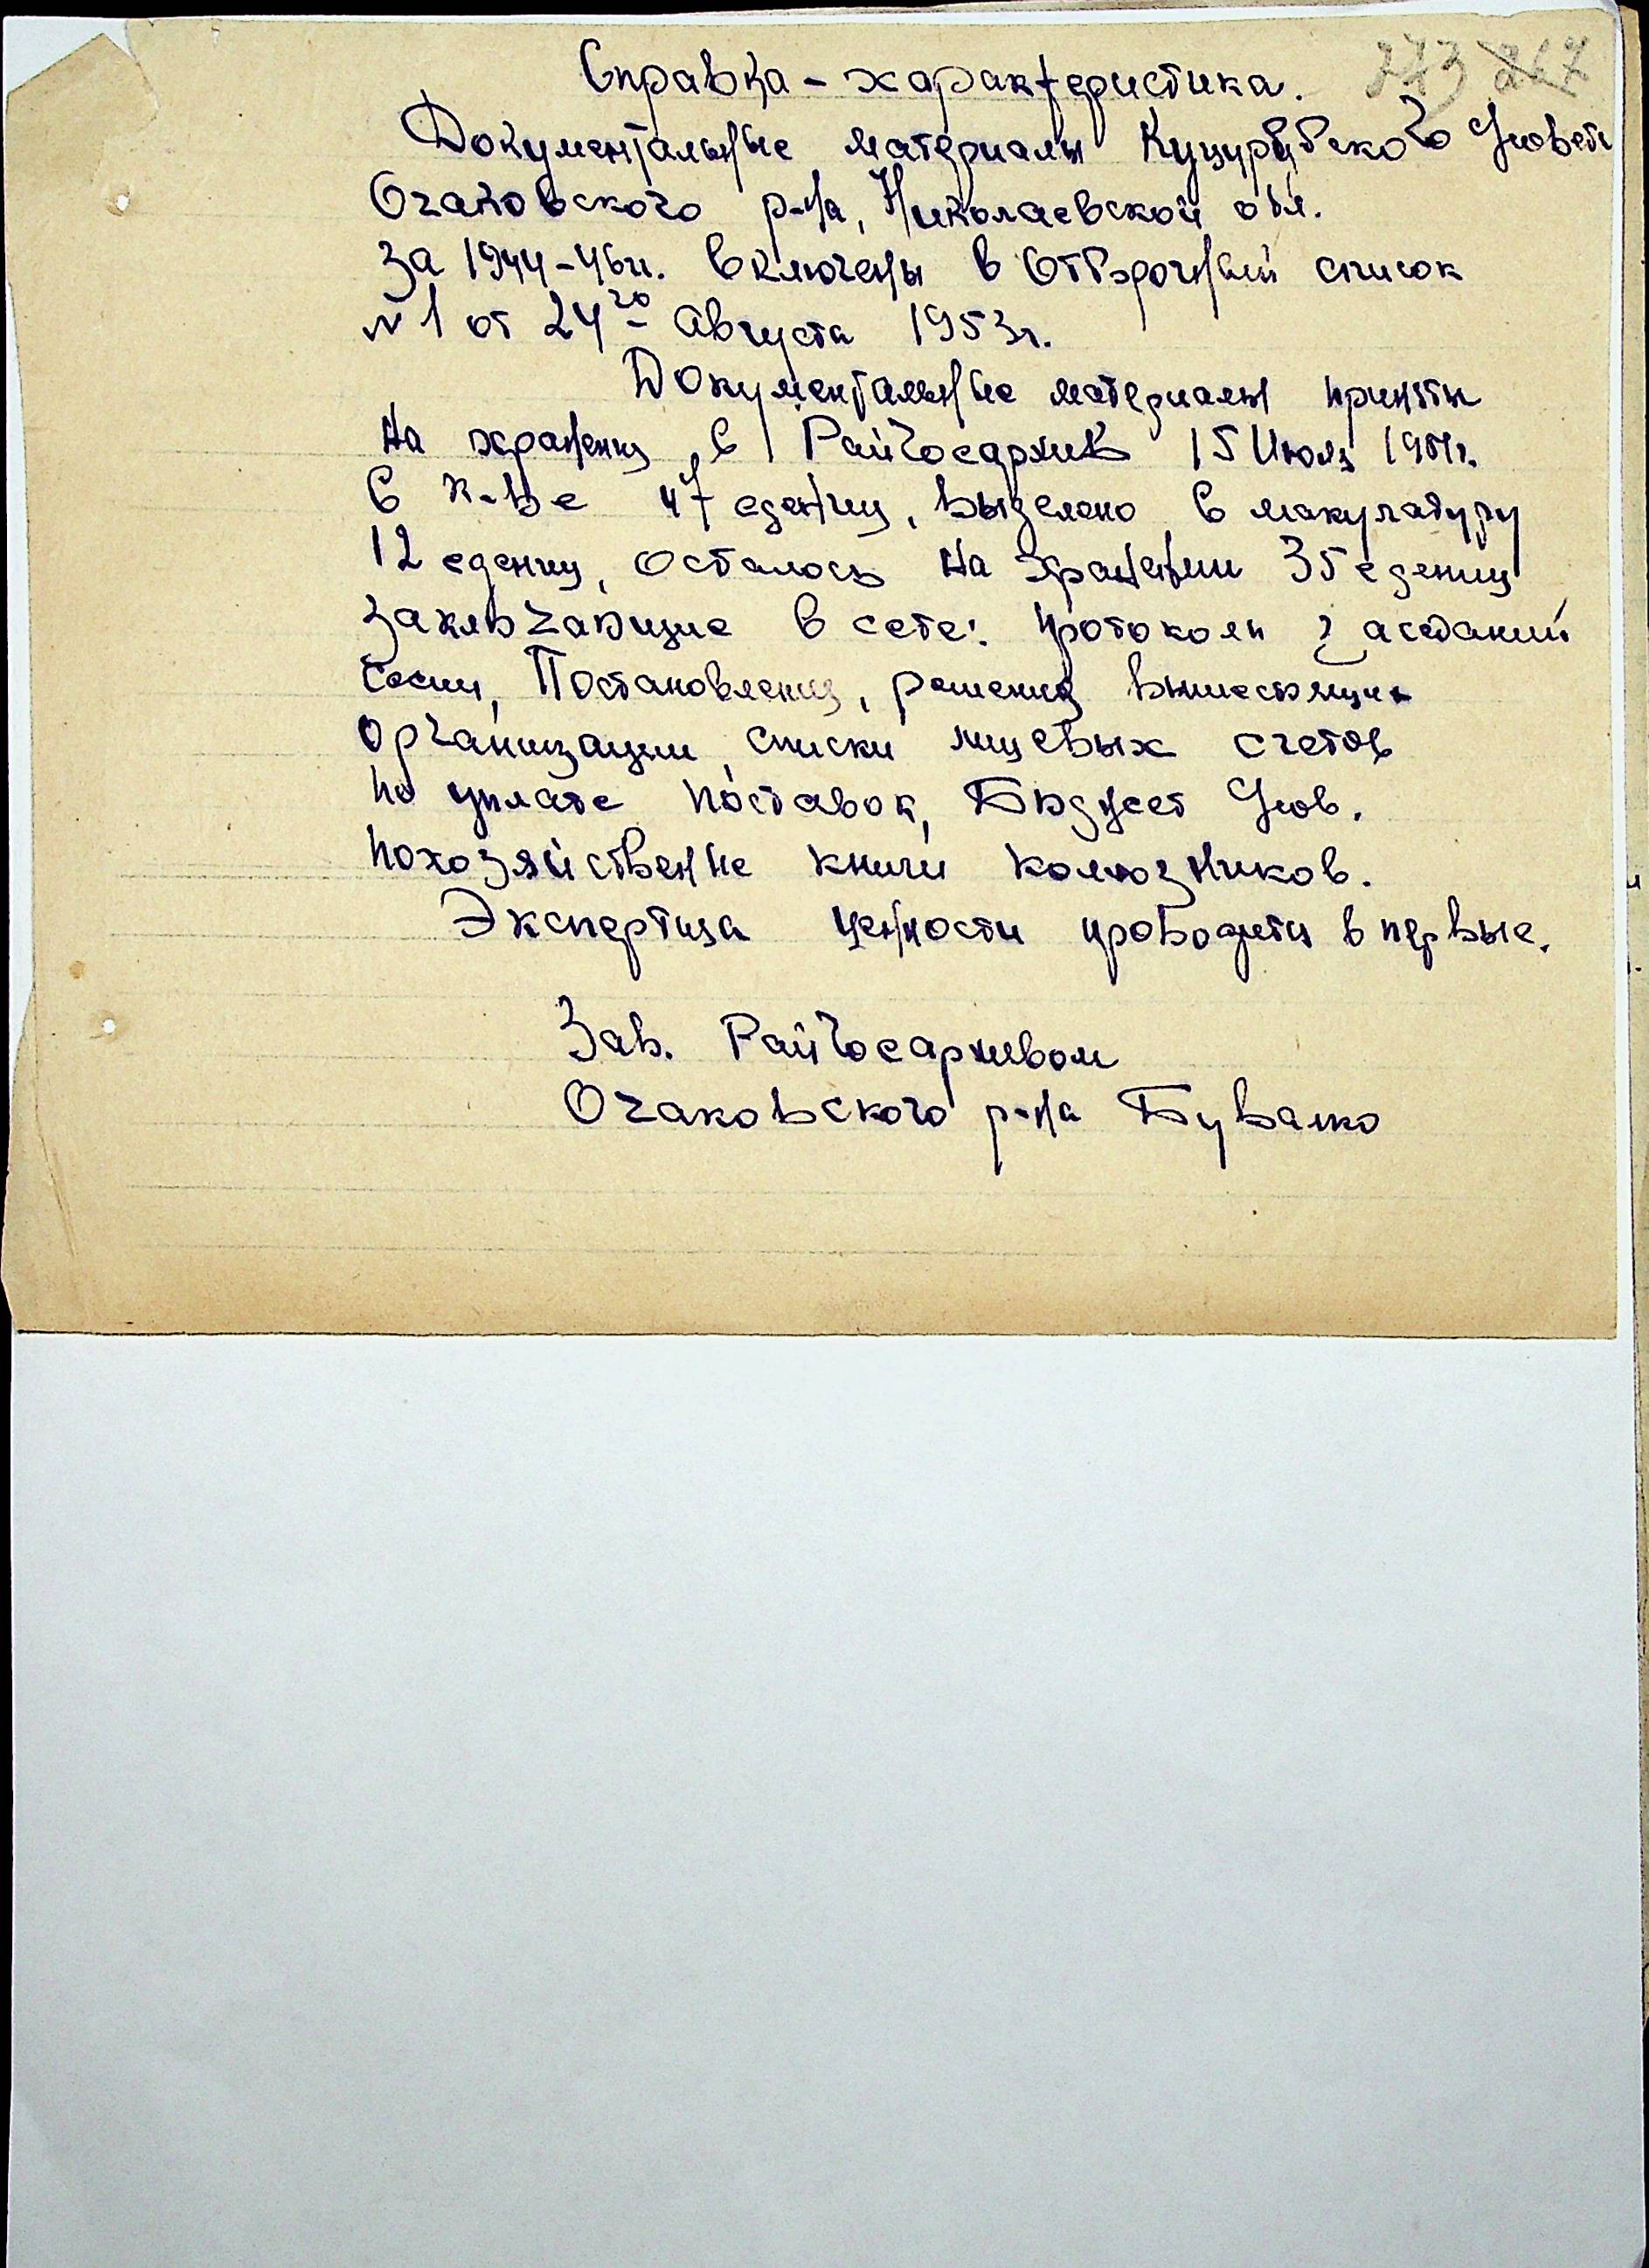 273 267
Справка - характеристика.
Документальные материалы Куцурубского
Очаковского р-на, Николаевской обл.
за 1944-46гг. включены в отборочный список
№1 от 24го августа 1953г.
Документальные материалы приняты
на хранения в Райгосархив 15 Июля 1951г.
в к-ве 47 едениц, выделено в макулатуру
12 едениц, осталось на хранении 35 едениц
заключающие в сете: протоколы заседаний
сесии, Постановления, решения вышестоящих
организации, списки лицевых счетов
по уплате поставок, Бюджет
похозяйственне книги колхозников.
Экспертиза ценности проводится в первые.
Зав. Райгосархивом
Очаковского р-на Бувалко